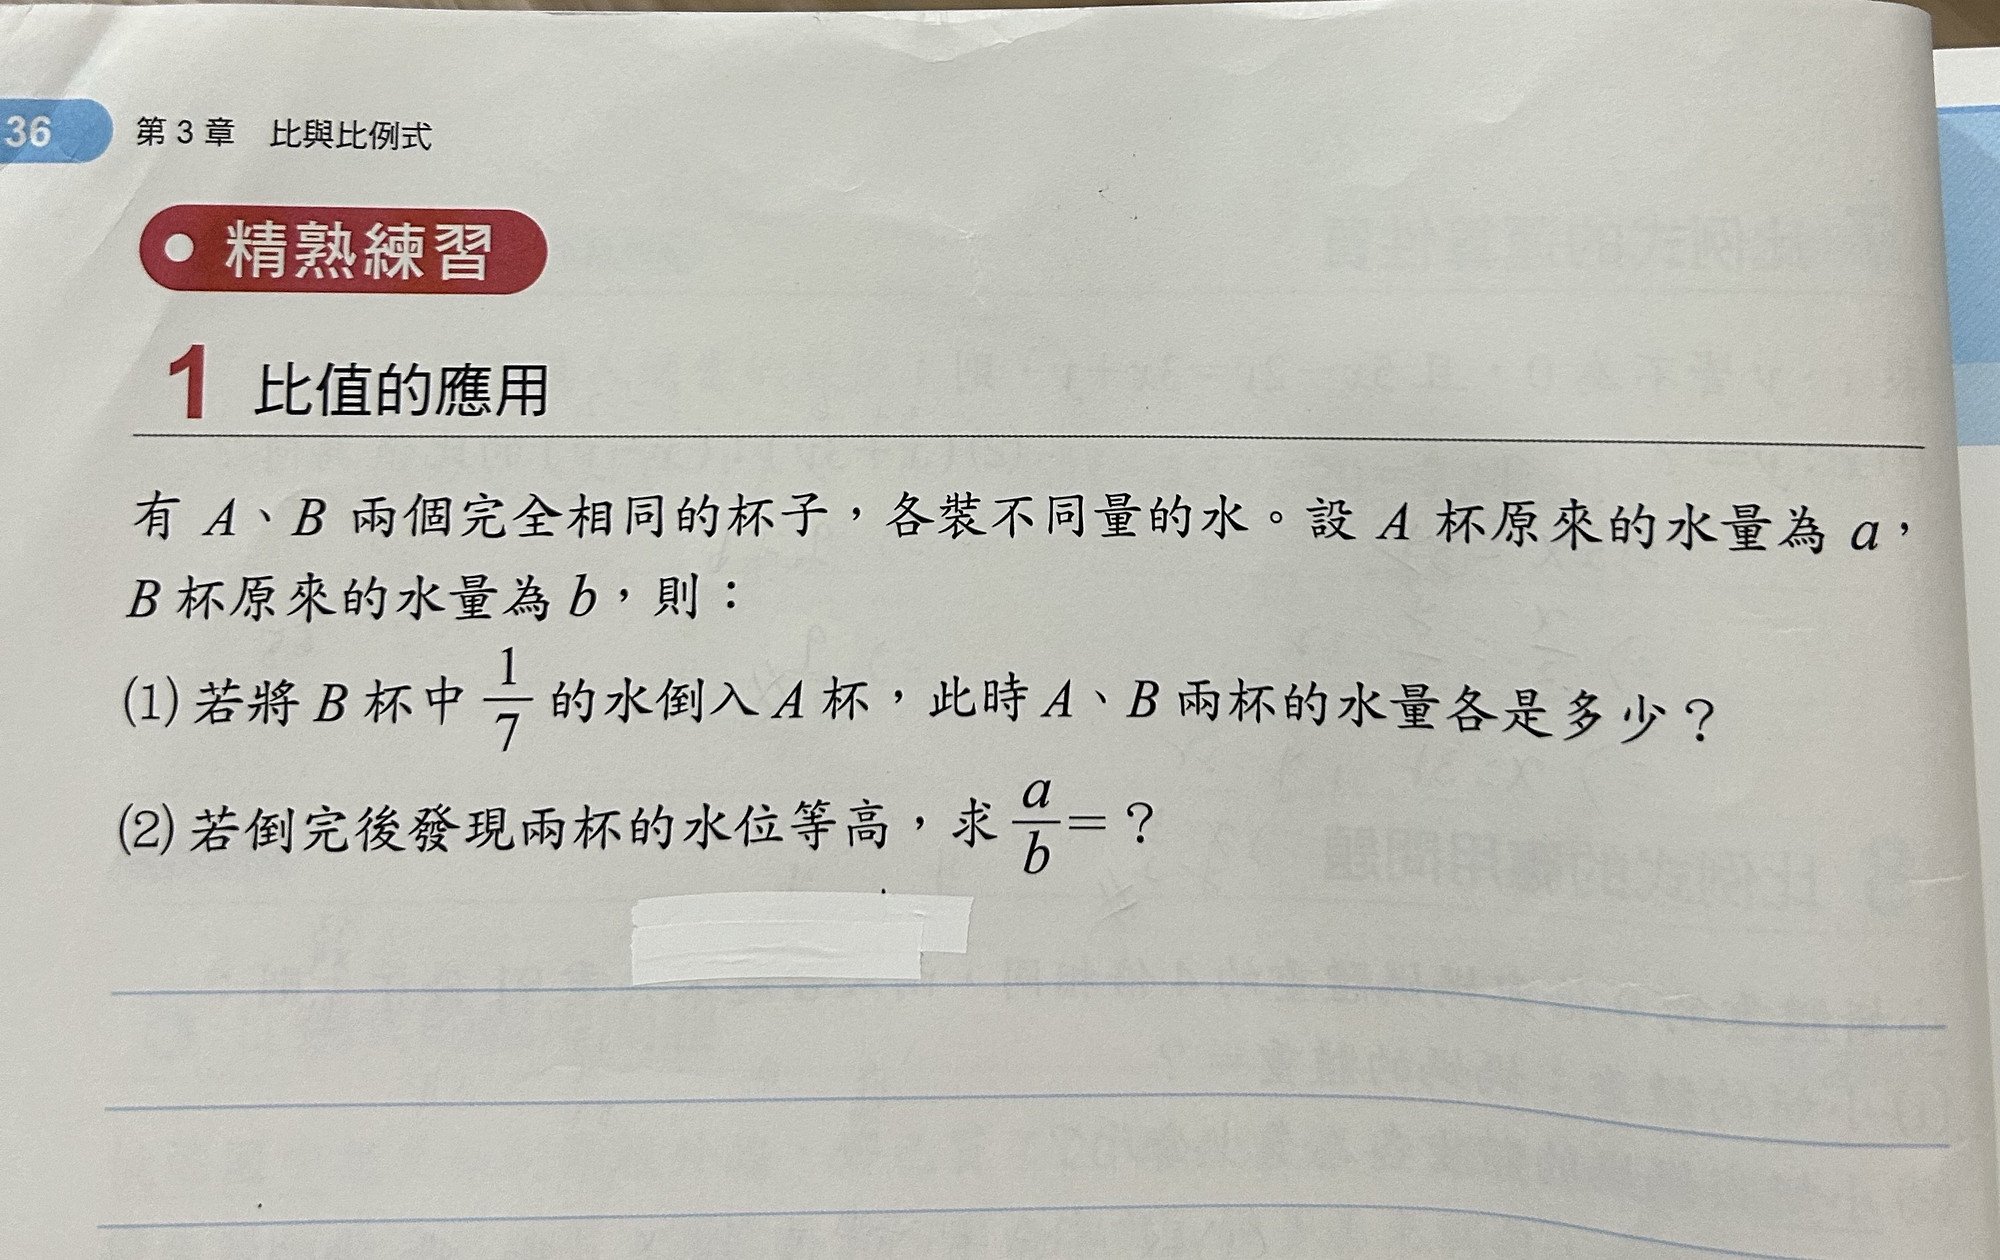 36 第3章 比與比例式
精熟練習
1 比值的應用
有 A、B 兩個完全相同的杯子，各裝不同量的水。設 A 杯原來的水量為 a，
B 杯原來的水量為 b，則：
(1) 若將 B 杯中 1/7 的水倒入 A 杯，此時 A、B 兩杯的水量各是多少？
(2) 若倒完後發現兩杯的水位等高，求 a/b = ？